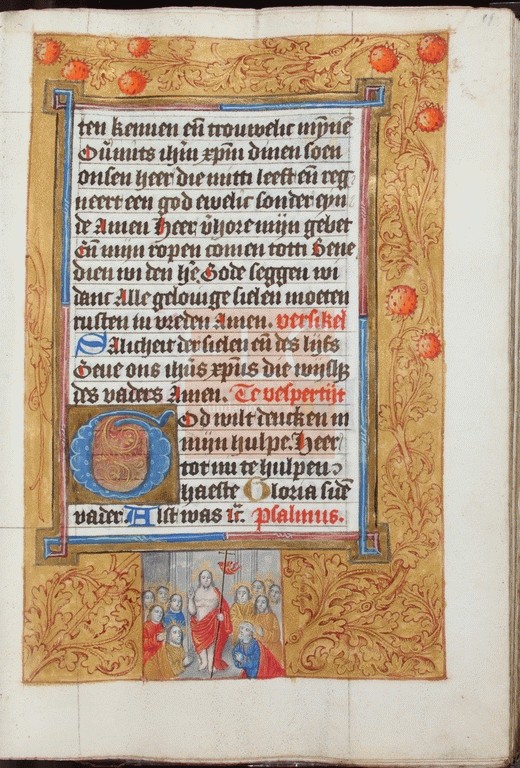 ten kennen eñ trouwelic mÿnē
Ouͥmits ihūm xpm dinen soen
onsen heer die mitti leeft eñ reg
neert een god ewelic sonder eyn
de Amen Heer v̄hore mijn gebet
Eñ mijn ropen comen totti Gene
dien wi den hē Gode seggen wi
danc Alle gelouige sielen moeten
rusten in vreden Amen. versikel
Salicheit der sielen eñ des lijfs
Geue ons ihūs xpūs die wijsh
des vaders Amen. Te vespertijt
God wilt dencken in
mijn hulpe. Heer
tot mi te hulpen
haeste Gloria si dē
vader Alst was Psalmus.